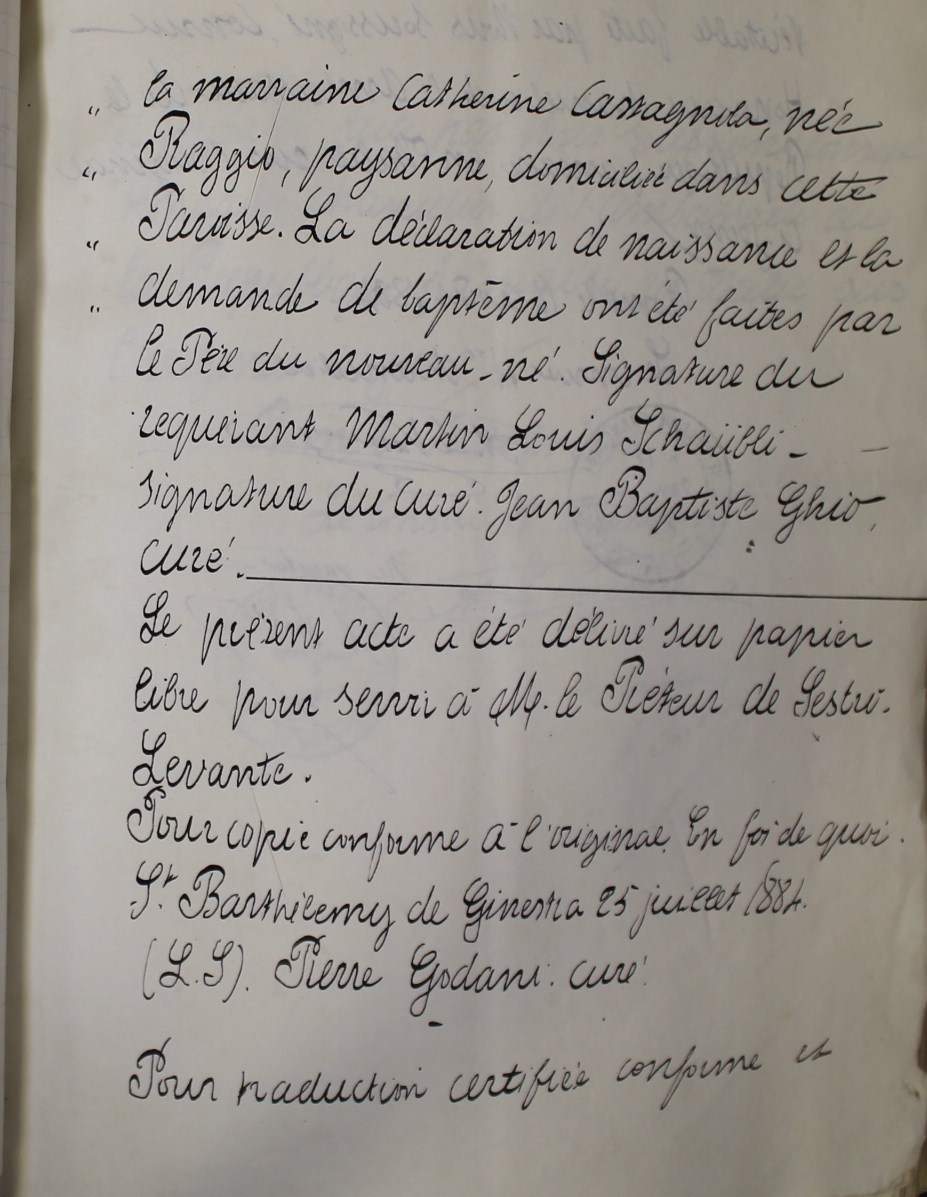 " la marraine Catherine Castagnola, née
" Raggio, paysanne, domiciliée dans cette
" Paroisse. La déclaration de naissance et la
" demande de baptême ont été faites par
le Père du nouveau-né. Signature du
requérant Martin Louis Schaübli -
signature du curé. Jean Baptiste Ghio,
curé.
Le présent acte a été délivré sur papier
libre pour servir à M. le Préteur de Sestri-
Levante.
Pour copie conforme à l'original. En foi de quoi.
St. Barthélemy de Ginestra 25 juillet 1884.
(L.S). Pierre Godani. curé
Pour traduction certifiée conforme et